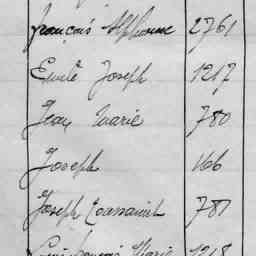 françois Alphonse 2761
Emile Joseph 1217
Jean Marie 780
Joseph 166
Joseph Toussaint 781
Louis françois Marie 1218